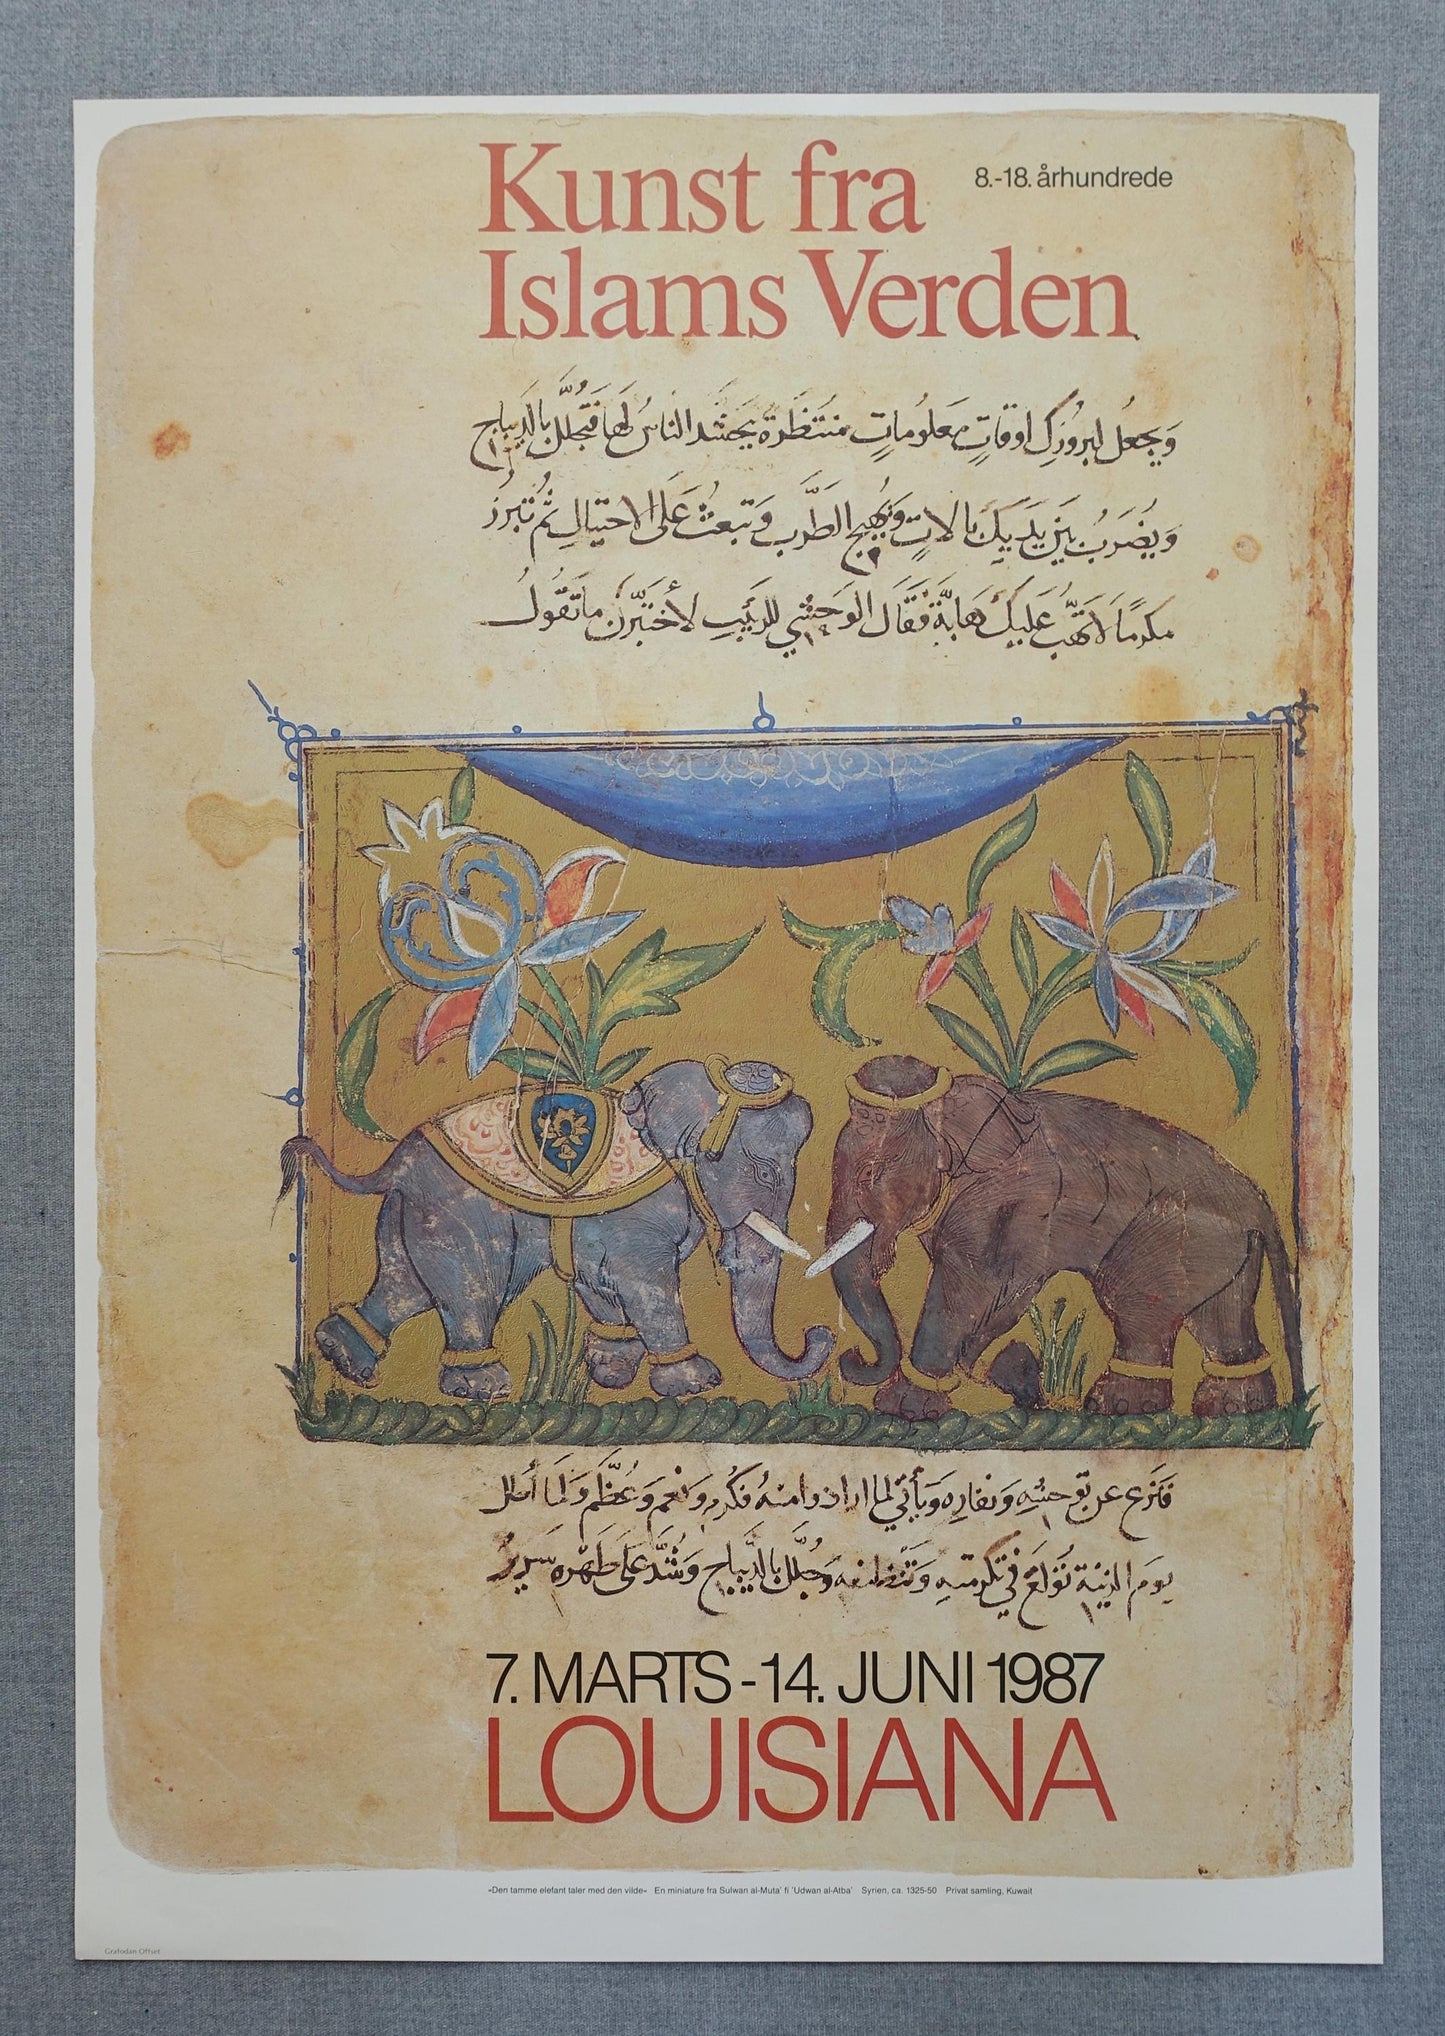 Kunst fra
8.-18. århundrede
Islams Verden
وَيجعُل لبروزكِ اوقاتٍ معلوماتٍ منتظَرة يحشد الناسُ لَها فتجلَّل بالديباج
وَيُضرَبُ بين يديك بالالاتٍ وَيهيج الطَّرب وَتبعثُ عَلى الاحتيالِ ثم تبرُز
مكرمًا لا تهبُّ عَليك هَابَّة فقَال الوَحشي للربيب لأختبرَنّ ما تَقُولُ
فنزع عن توحشِه وَنفاره وَيأتي لما اراد وامنه فكُرم وَنعم وَعُظّم وَلمَا أطل
يومَ الزينة تُوَلغ في تكرمته وَتنظيفه وَجلّل بالدِّيباج وَشُدَّ عَلى ظَهْره سَرير
7. MARTS - 14. JUNI 1987
LOUISIANA
»Den tamme elefant taler med den vilde« En miniature fra Sulwan al-Muta' fi 'Udwan al-Atba' Syrien, ca. 1325-50 Privat samling, Kuwait
Grafodan Offset